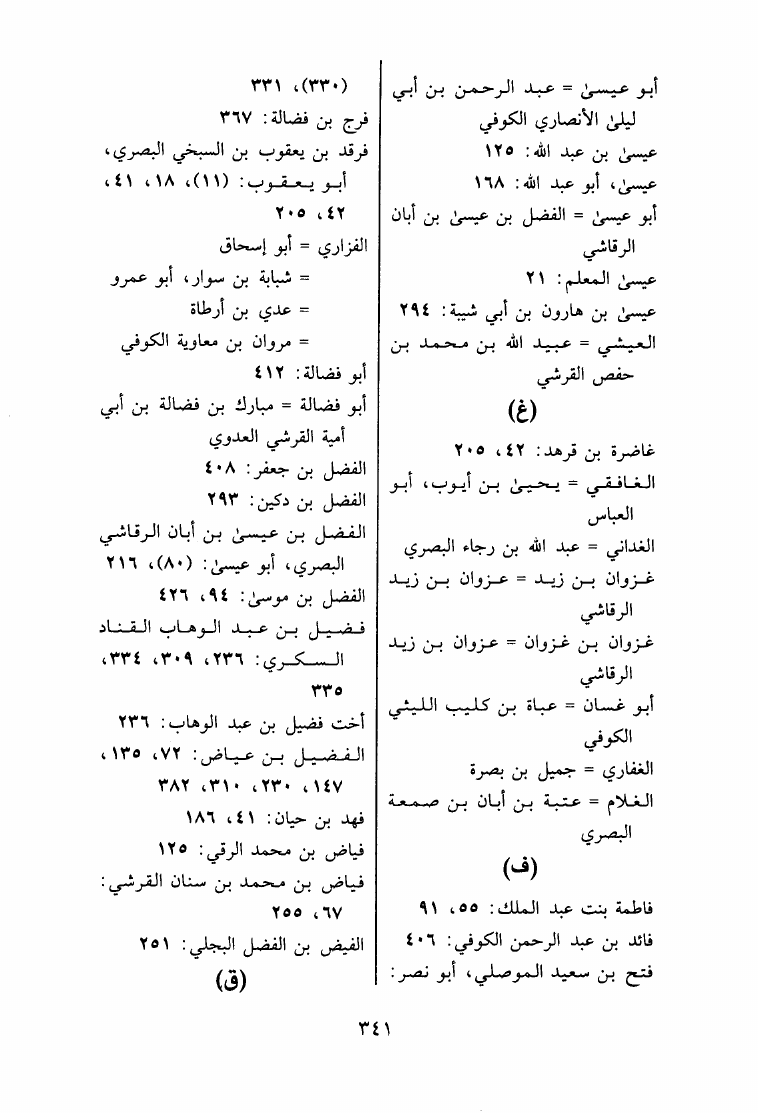 أبو عيسىٰ = عبد الرحمن بن أبي
ليلىٰ الأنصاري الكوفي
عيسىٰ بن عبد الله: ١٢٥
عيسىٰ، أبو عبد الله: ١٦٨
أبو عيسىٰ = الفضل بن عيسىٰ بن أبان
الرقاشي
عيسىٰ المعلم: ٢١
عيسىٰ بن هارون بن أبي شيبة: ٢٩٤
العيشي = عبيد الله بن محمد بن
حفص القرشي
(غ)
غاضرة بن قرهد: ٤٢، ٢٠٥
الغافقي = يحيىٰ بن أيوب، أبو
العباس
الغداني = عبد الله بن رجاء البصري
غزوان بن زيد = عزوان بن زيد
الرقاشي
غزوان بن غزوان = عزوان بن زيد
الرقاشي
أبو غسان = عباة بن كليب الليثي
الكوفي
الغفاري = جميل بن بصرة
الغلام = عتبة بن أبان بن صمعة
البصري
(ف)
فاطمة بنت عبد الملك: ٥٥، ٩١
فائد بن عبد الرحمن الكوفي: ٤٠٦
فتح بن سعيد الموصلي، أبو نصر:
(٣٣٠)، ٣٣١
فرج بن فضالة: ٣٦٧
فرقد بن يعقوب بن السبخي البصري،
أبو يعقوب: (١١)، ١٨، ٤١،
٤٢، ٢٠٥
الفزاري = أبو إسحاق
= شبابة بن سوار، أبو عمرو
= عدي بن أرطاة
= مروان بن معاوية الكوفي
أبو فضالة: ٤١٢
أبو فضالة = مبارك بن فضالة بن أبي
أمية القرشي العدوي
الفضل بن جعفر: ٤٠٨
الفضل بن دكين: ٢٩٣
الفضل بن عيسىٰ بن أبان الرقاشي
البصري، أبو عيسىٰ: (٨٠)، ٢١٦
الفضل بن موسىٰ: ٩٤، ٤٢٦
فضيل بن عبد الوهاب القناد
السكري: ٢٣٦، ٣٠٩، ٣٣٤،
٣٣٥
أخت فضيل بن عبد الوهاب: ٢٣٦
الفضيل بن عياض: ٧٢، ١٣٥،
١٤٧، ٢٣٠، ٣١٠، ٣٨٢
فهد بن حيان: ٤١، ١٨٦
فياض بن محمد الرقي: ١٢٥
فياض بن محمد بن سنان القرشي:
٦٧، ٢٥٥
الفيض بن الفضل البجلي: ٢٥١
(ق)
٣٤١